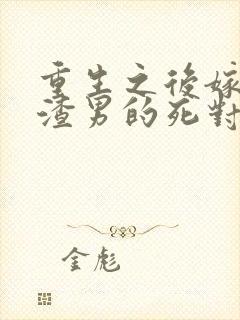 重生之後嫁
渣男的死對
金彪